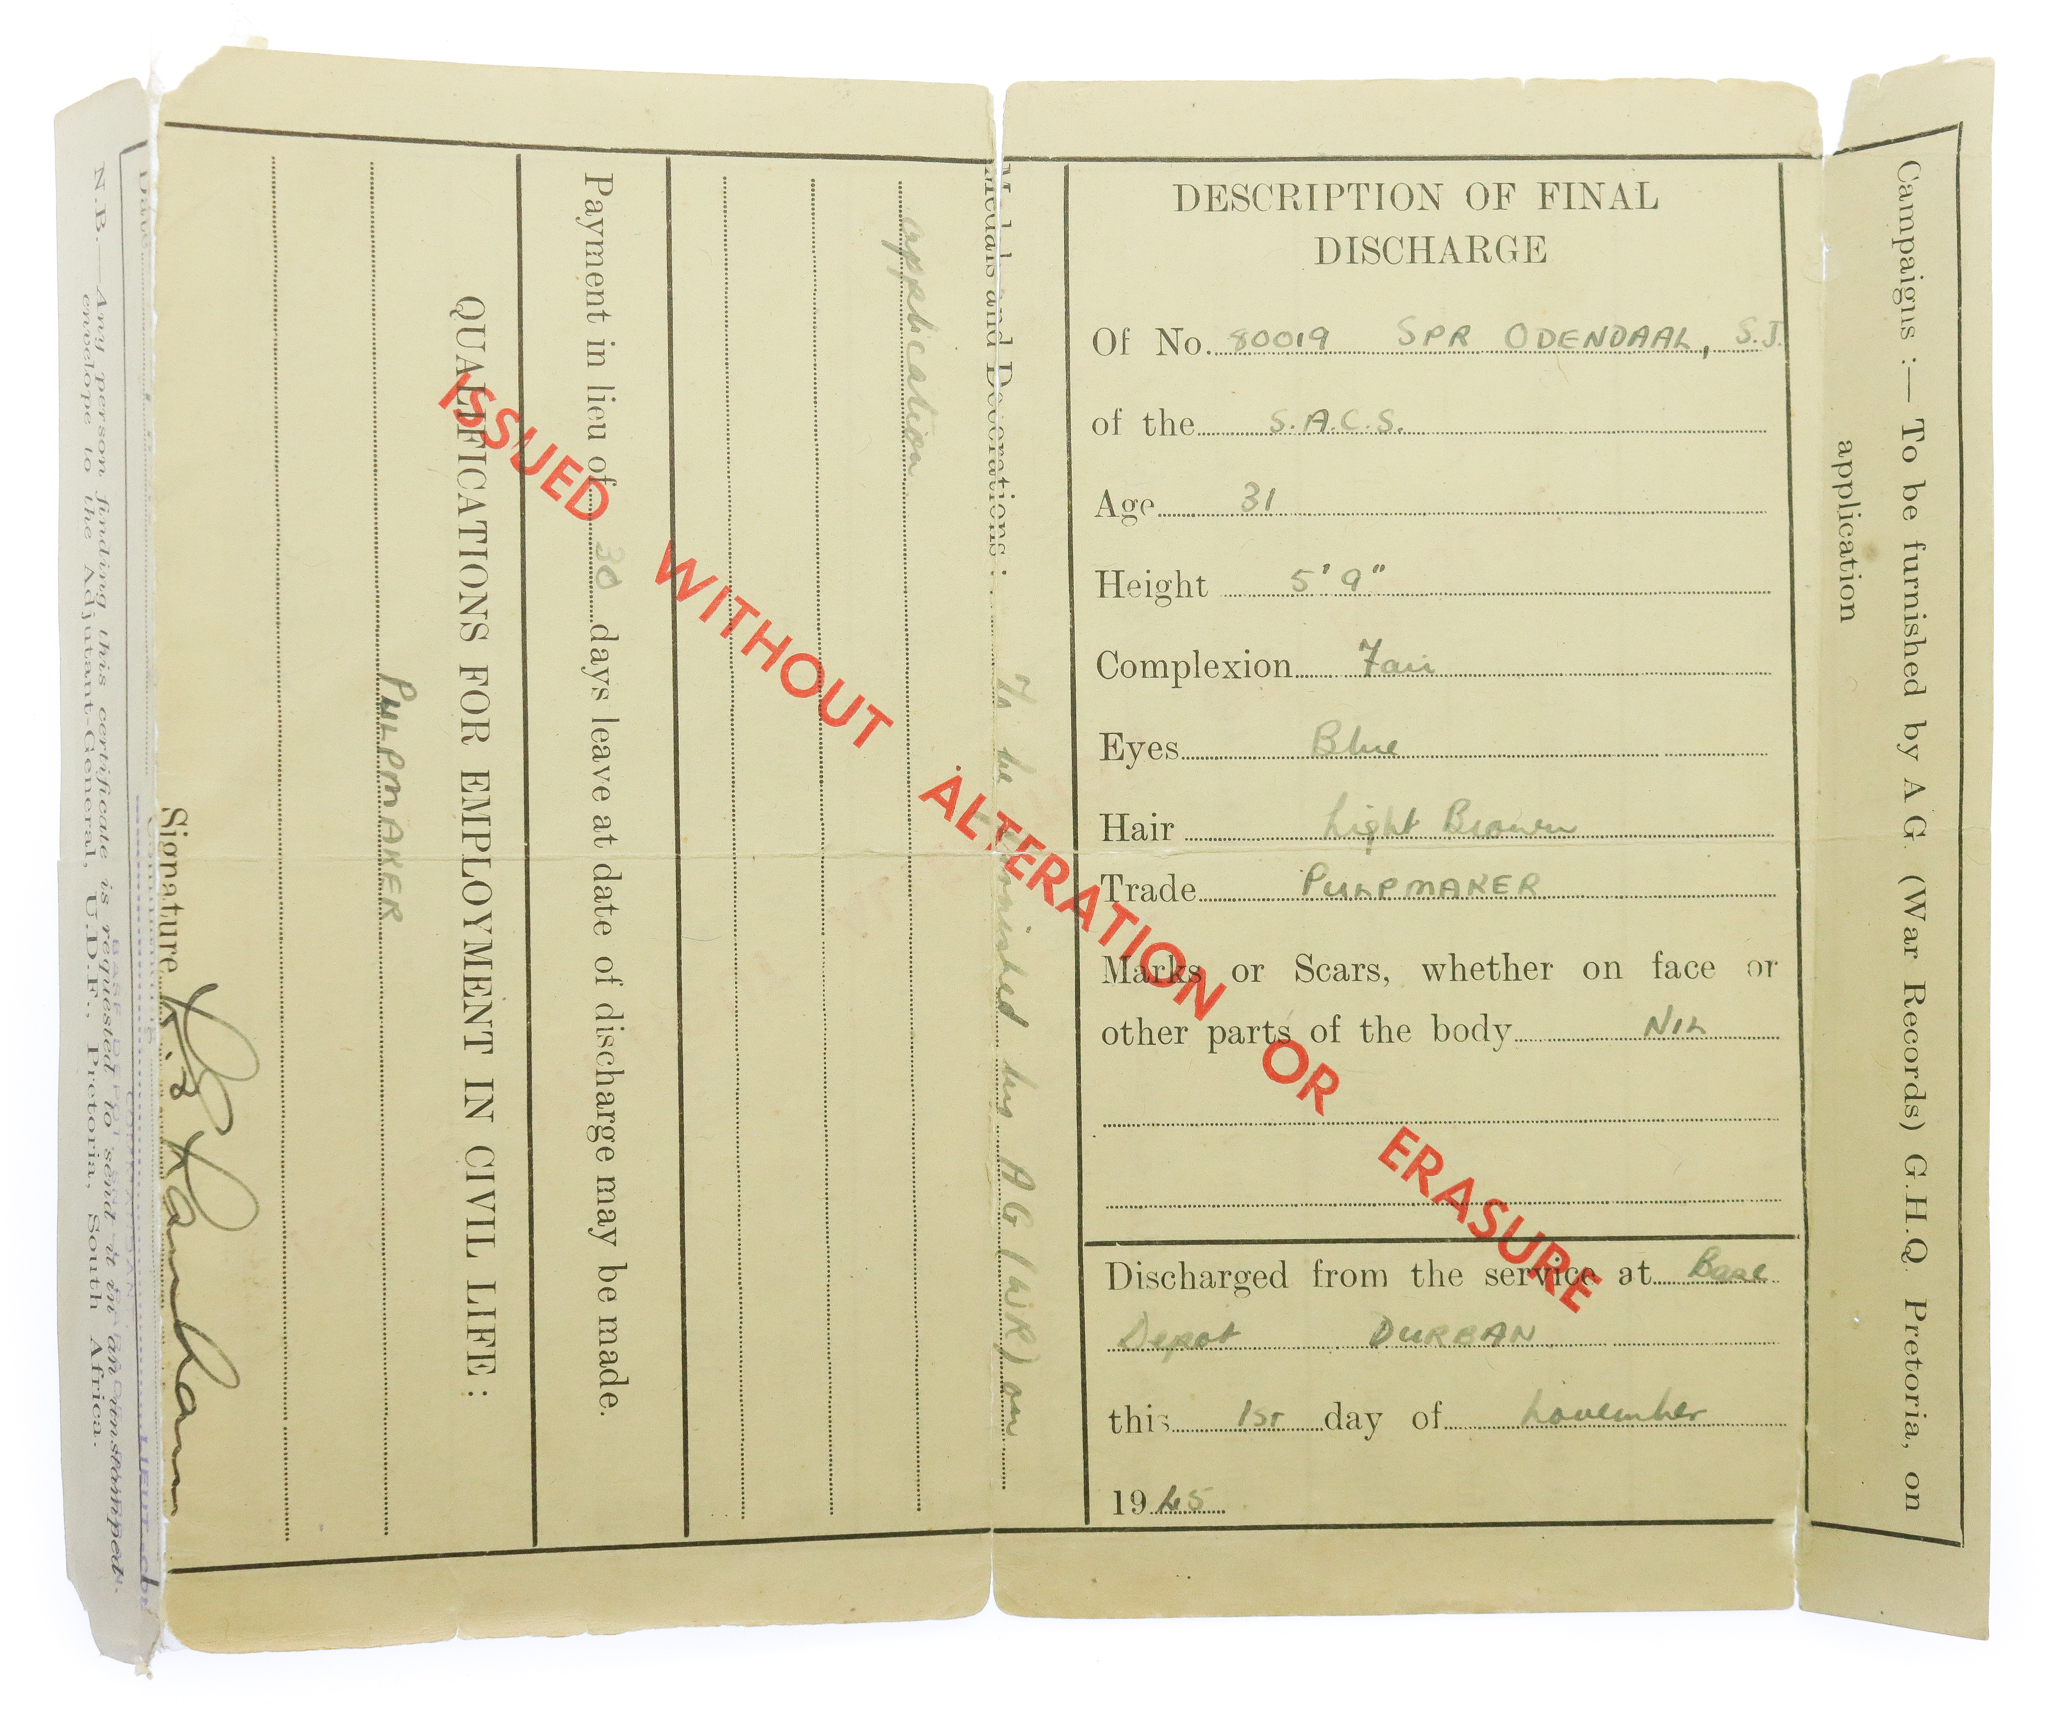 DESCRIPTION OF FINAL
DISCHARGE
Of No. 80019 SPR ODENDAAL, S.J.
of the S.A.C.S.
Age 31
Height 5' 9"
Complexion Fair
Eyes Blue
Hair Light Brown
Trade PULPMAKER
Marks or Scars, whether on face or
other parts of the body NIL
Discharged from the service at Base
Depot DURBAN
this 1ST day of November
1945
Campaigns :— To be furnished by A G (War Records) G.H.Q Pretoria, on
application
Medals and Decorations : To be furnished by AG (WR) on
application
Payment in lieu of 30 days leave at date of discharge may be made.
QUALIFICATIONS FOR EMPLOYMENT IN CIVIL LIFE :
PULPMAKER
Signature
Date
N.B.—Any person finding this certificate is requested to send it in an unstamped
envelope to the Adjutant-General, U.D.F., Pretoria, South Africa.
ISSUED WITHOUT ALTERATION OR ERASURE